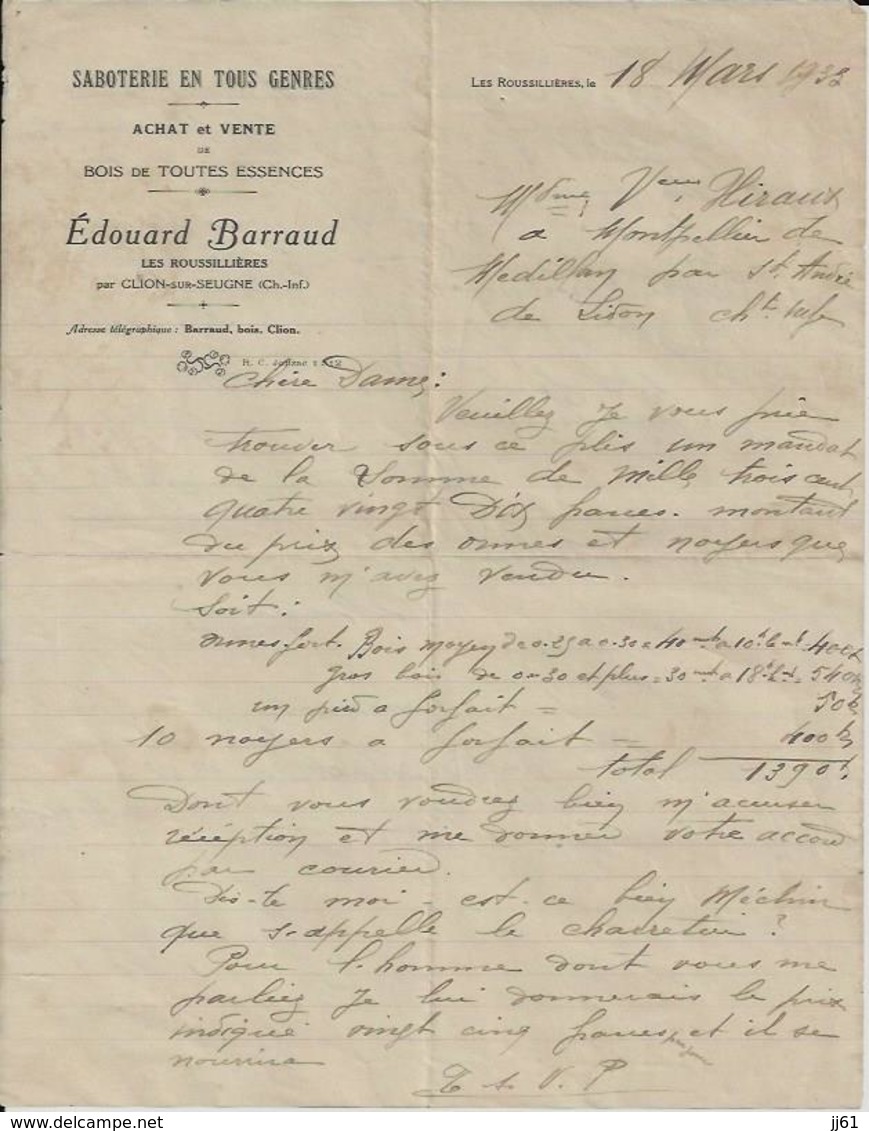 SABOTERIE EN TOUS GENRES
ACHAT et VENTE
DE
BOIS DE TOUTES ESSENCES
Édouard Barraud
LES ROUSSILLIÈRES
par CLION-SUR-SEUGNE (Ch.-Inf.)
Adresse télégraphique : Barraud, bois, Clion.
R. C. Jonzac
LES ROUSSILLIÈRES, le 18 Mars 1933
Mdme Veuve Hiraux
a Montpellier de
Medillan par St. André
de Lidon cht. inf
Chère Dame :
Veuillez je vous prie
trouver sous ce plis un mandat
de la somme de mille trois cent
quatre vingt Dix francs. montant
du prix des ormes et noyers que
vous m'avez vendu.
Soit :
ormes fort. Bois moyen de 0.25 a 0.30 = 40 a 10f le mt = 400f
gros bois de 0.30 et plus = 30 a 18f le mt = 540f
un pied a forfait = 50f
10 noyers a forfait = 400f
total 1390f.
Dont vous voudrez bien m'accuser
réception et me donner votre accord
par courier.
Dis-te moi - est-ce bien Méchin
que s-appelle le charretier ?
Pour l'homme dont vous me
parliez je lui donnerais le prix
indiqué vingt cinq francs par jour et il se
nourrira
T. S. V. P
jj61